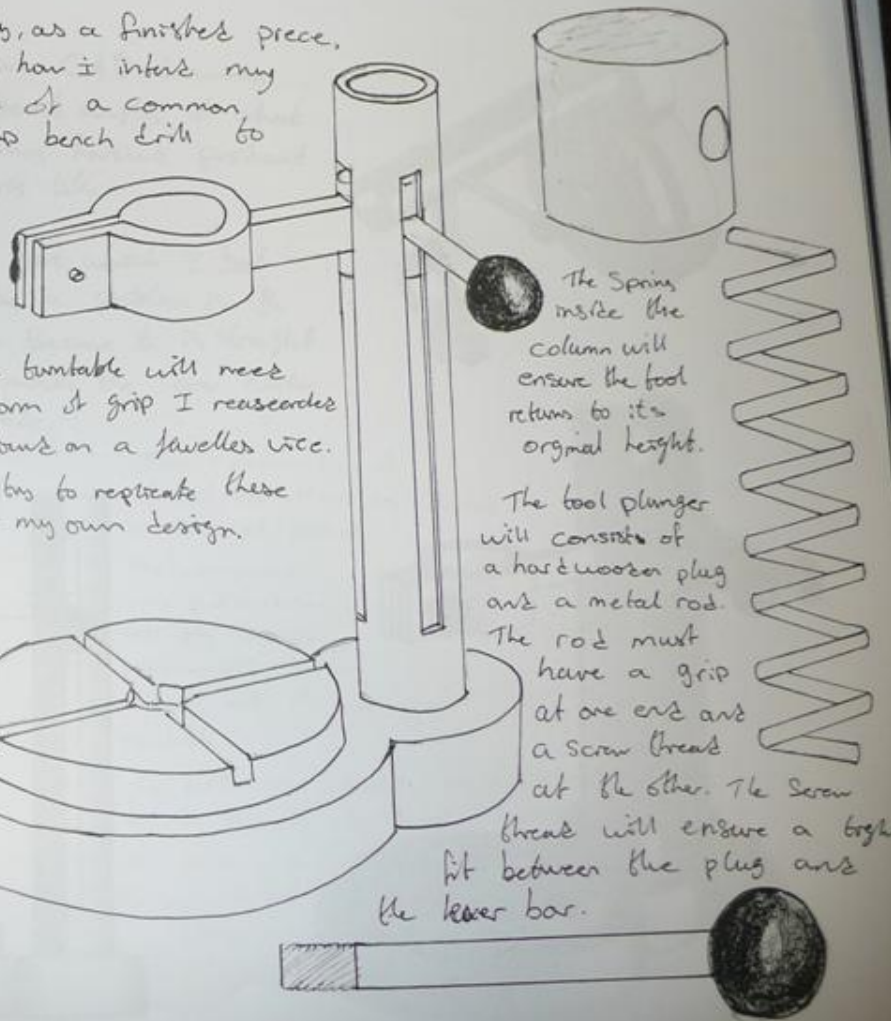 as a finished piece,
how i intend my
of a common
bench drill to
turntable will need
of grip I reasearded
on a Jwelles vice.
to replicate these
my own design.
The Spring
inside the
column will
ensure the tool
returns to its
orginal height.
The tool plunger
will consists of
a hardwooden plug
and a metal rod.
The rod must
have a grip
at one end and
a screw thread
at the other. The Screw
thread will ensure a
fit between the plug and
the lever bar.